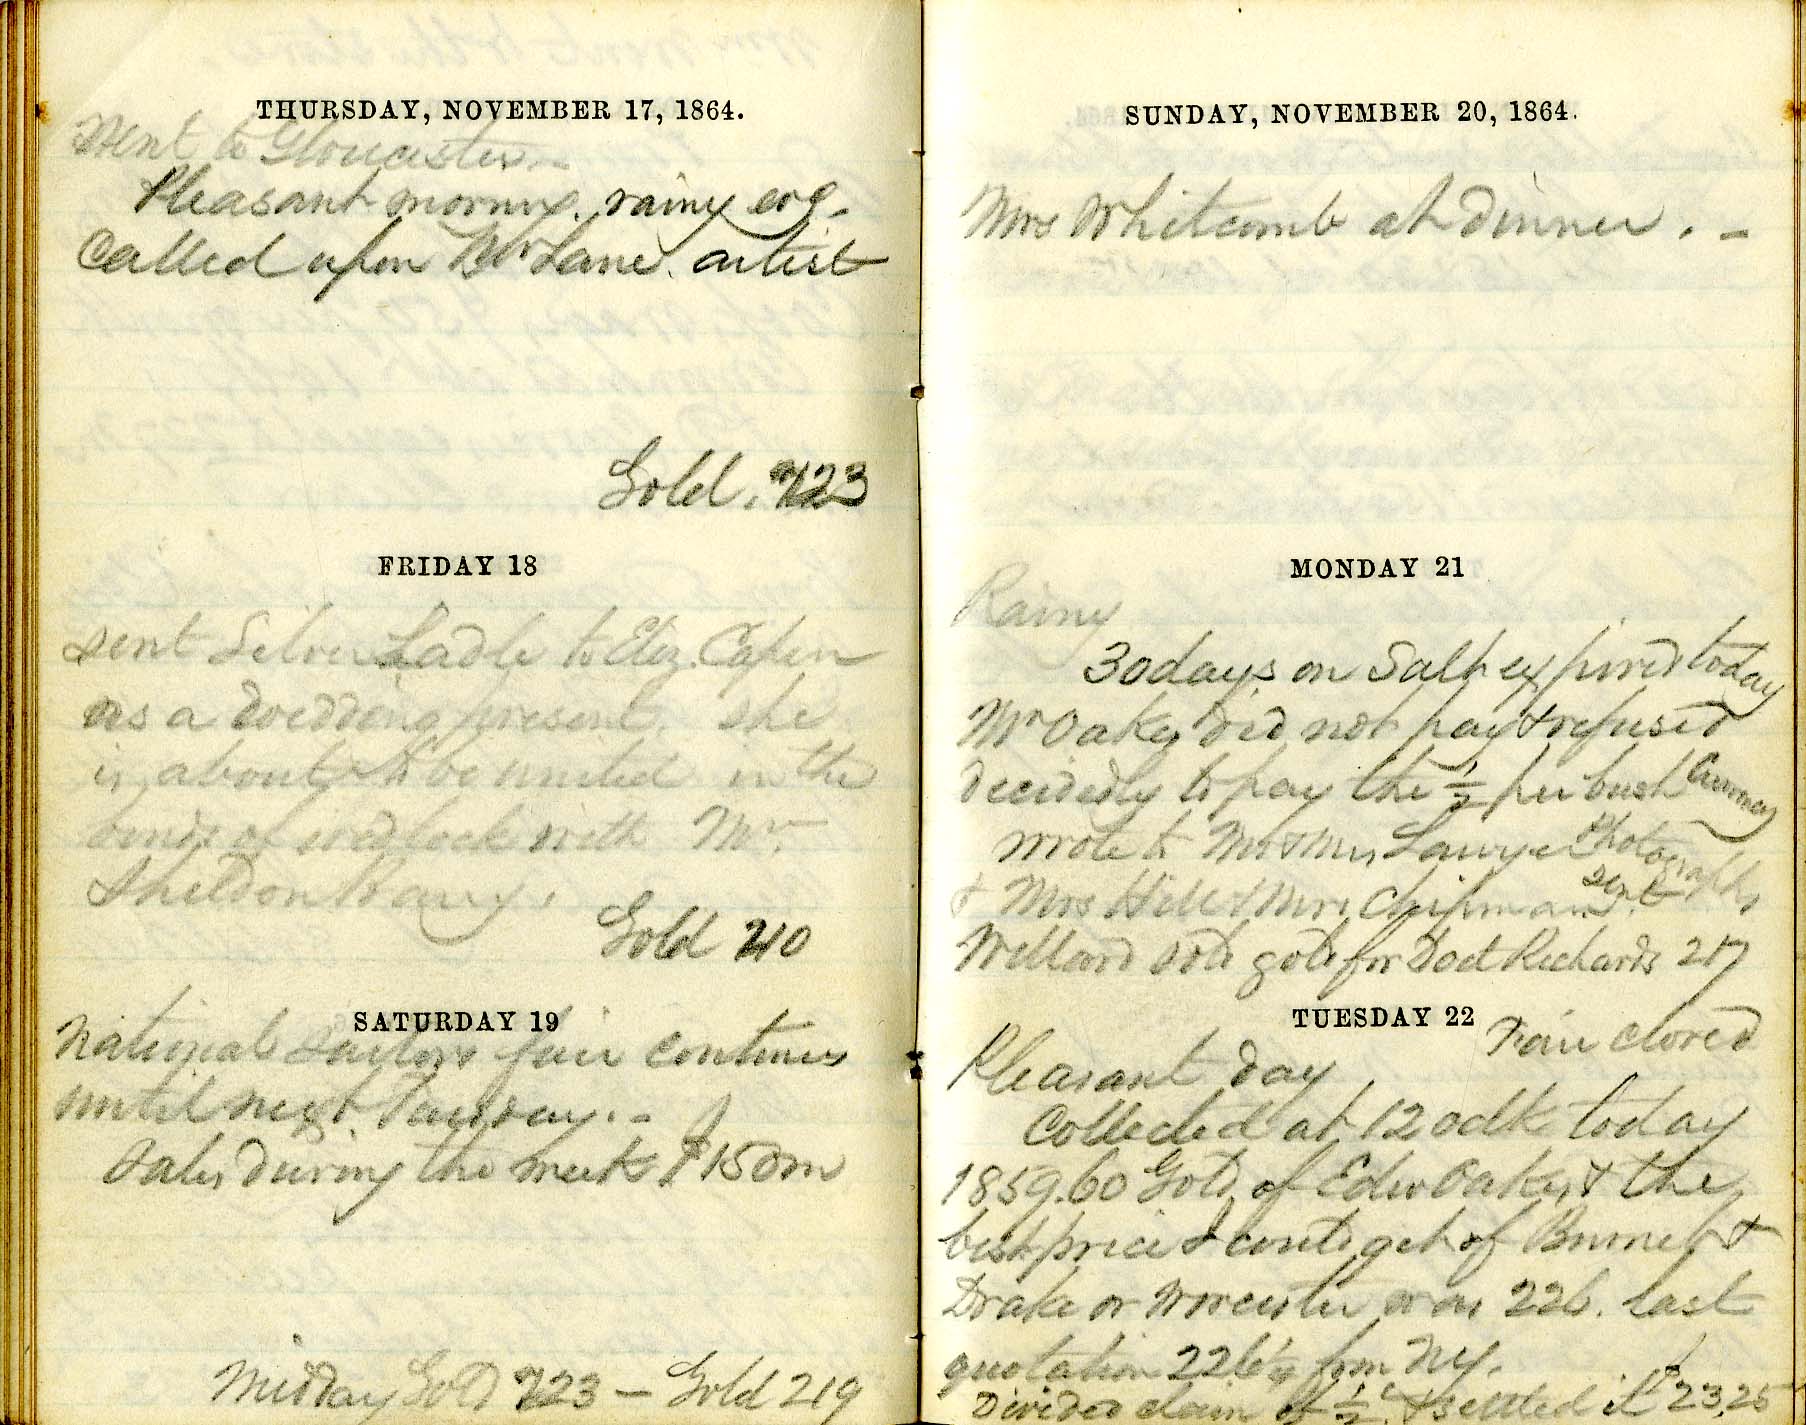 THURSDAY, NOVEMBER 17, 1864.
Went to Gloucester
Pleasant morning. rainy eve.
Called upon Mr Lane. artist
Gold. 223
FRIDAY 18
sent Silver Ladle to Eliz. Capen
as a wedding present. she
is about to be united in the
bonds of wedlock with Mr.
Sheldon
Gold 210
SATURDAY 19
National Sailors fair continues
until next Tuesday. -
Sales during the week $150m
Midday Gold 223 - Gold 219
SUNDAY, NOVEMBER 20, 1864.
Mrs Whitcomb at dinner. -
MONDAY 21
Rainy
30 days on Salt expired today
Mr Oakes did not pay & refused
decidedly to pay the 1/2 per bush
wrote to Mr & Mrs Sawyer Photographs
& Mrs Hill & Mrs Chipman sent
Willard sold gold for Doct Richards 217
TUESDAY 22
Fair closed
Pleasant day
Collected at 12 oclk today
1859.60 Gold of Edw Oakes & the
best price I could get of Burnett &
Drake or Worcester was 226. last
quotation 226 1/4 from NY.
Divided claim of 1/2 c & settled it $23,25